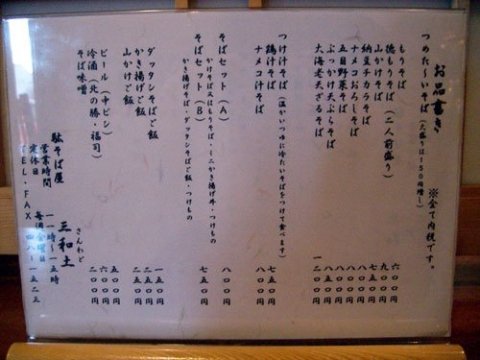 お品書き ※全て内税です。
つめた～いそば(大盛りは150円増し)
もりそば 六〇〇円
徳もりそば(二人前盛り) 九〇〇円
山かけそば 七五〇円
納豆チカラそば
ナメコおろしそば
五目野菜そば
ぶっかけ天ぷらそば
大海老天ざるそば 一二〇〇円
つけ汁そば(温かいつゆに冷たいそばをつけて食べます)
鶏汁そば 七五〇円
ナメコ汁そば 八〇〇円
そばセット(A) 八〇〇円
かけそば又はもりそば・ミニかき揚げ丼・つけもの
そばセット(B) 七五〇円
かき揚げそば・ダッタンそばご飯・つけもの
ダッタンそばご飯 一五〇円
かき揚げご飯 二五〇円
山かけご飯 二五〇円
ビール(中ビン) 五〇〇円
冷酒(北の勝・福司)
そば味噌 二〇〇円
さんわど
駄そば屋 三和土
営業時間 一一時～一五時
定休日 毎週金曜日
TEL・FAX 四八ー一五二五